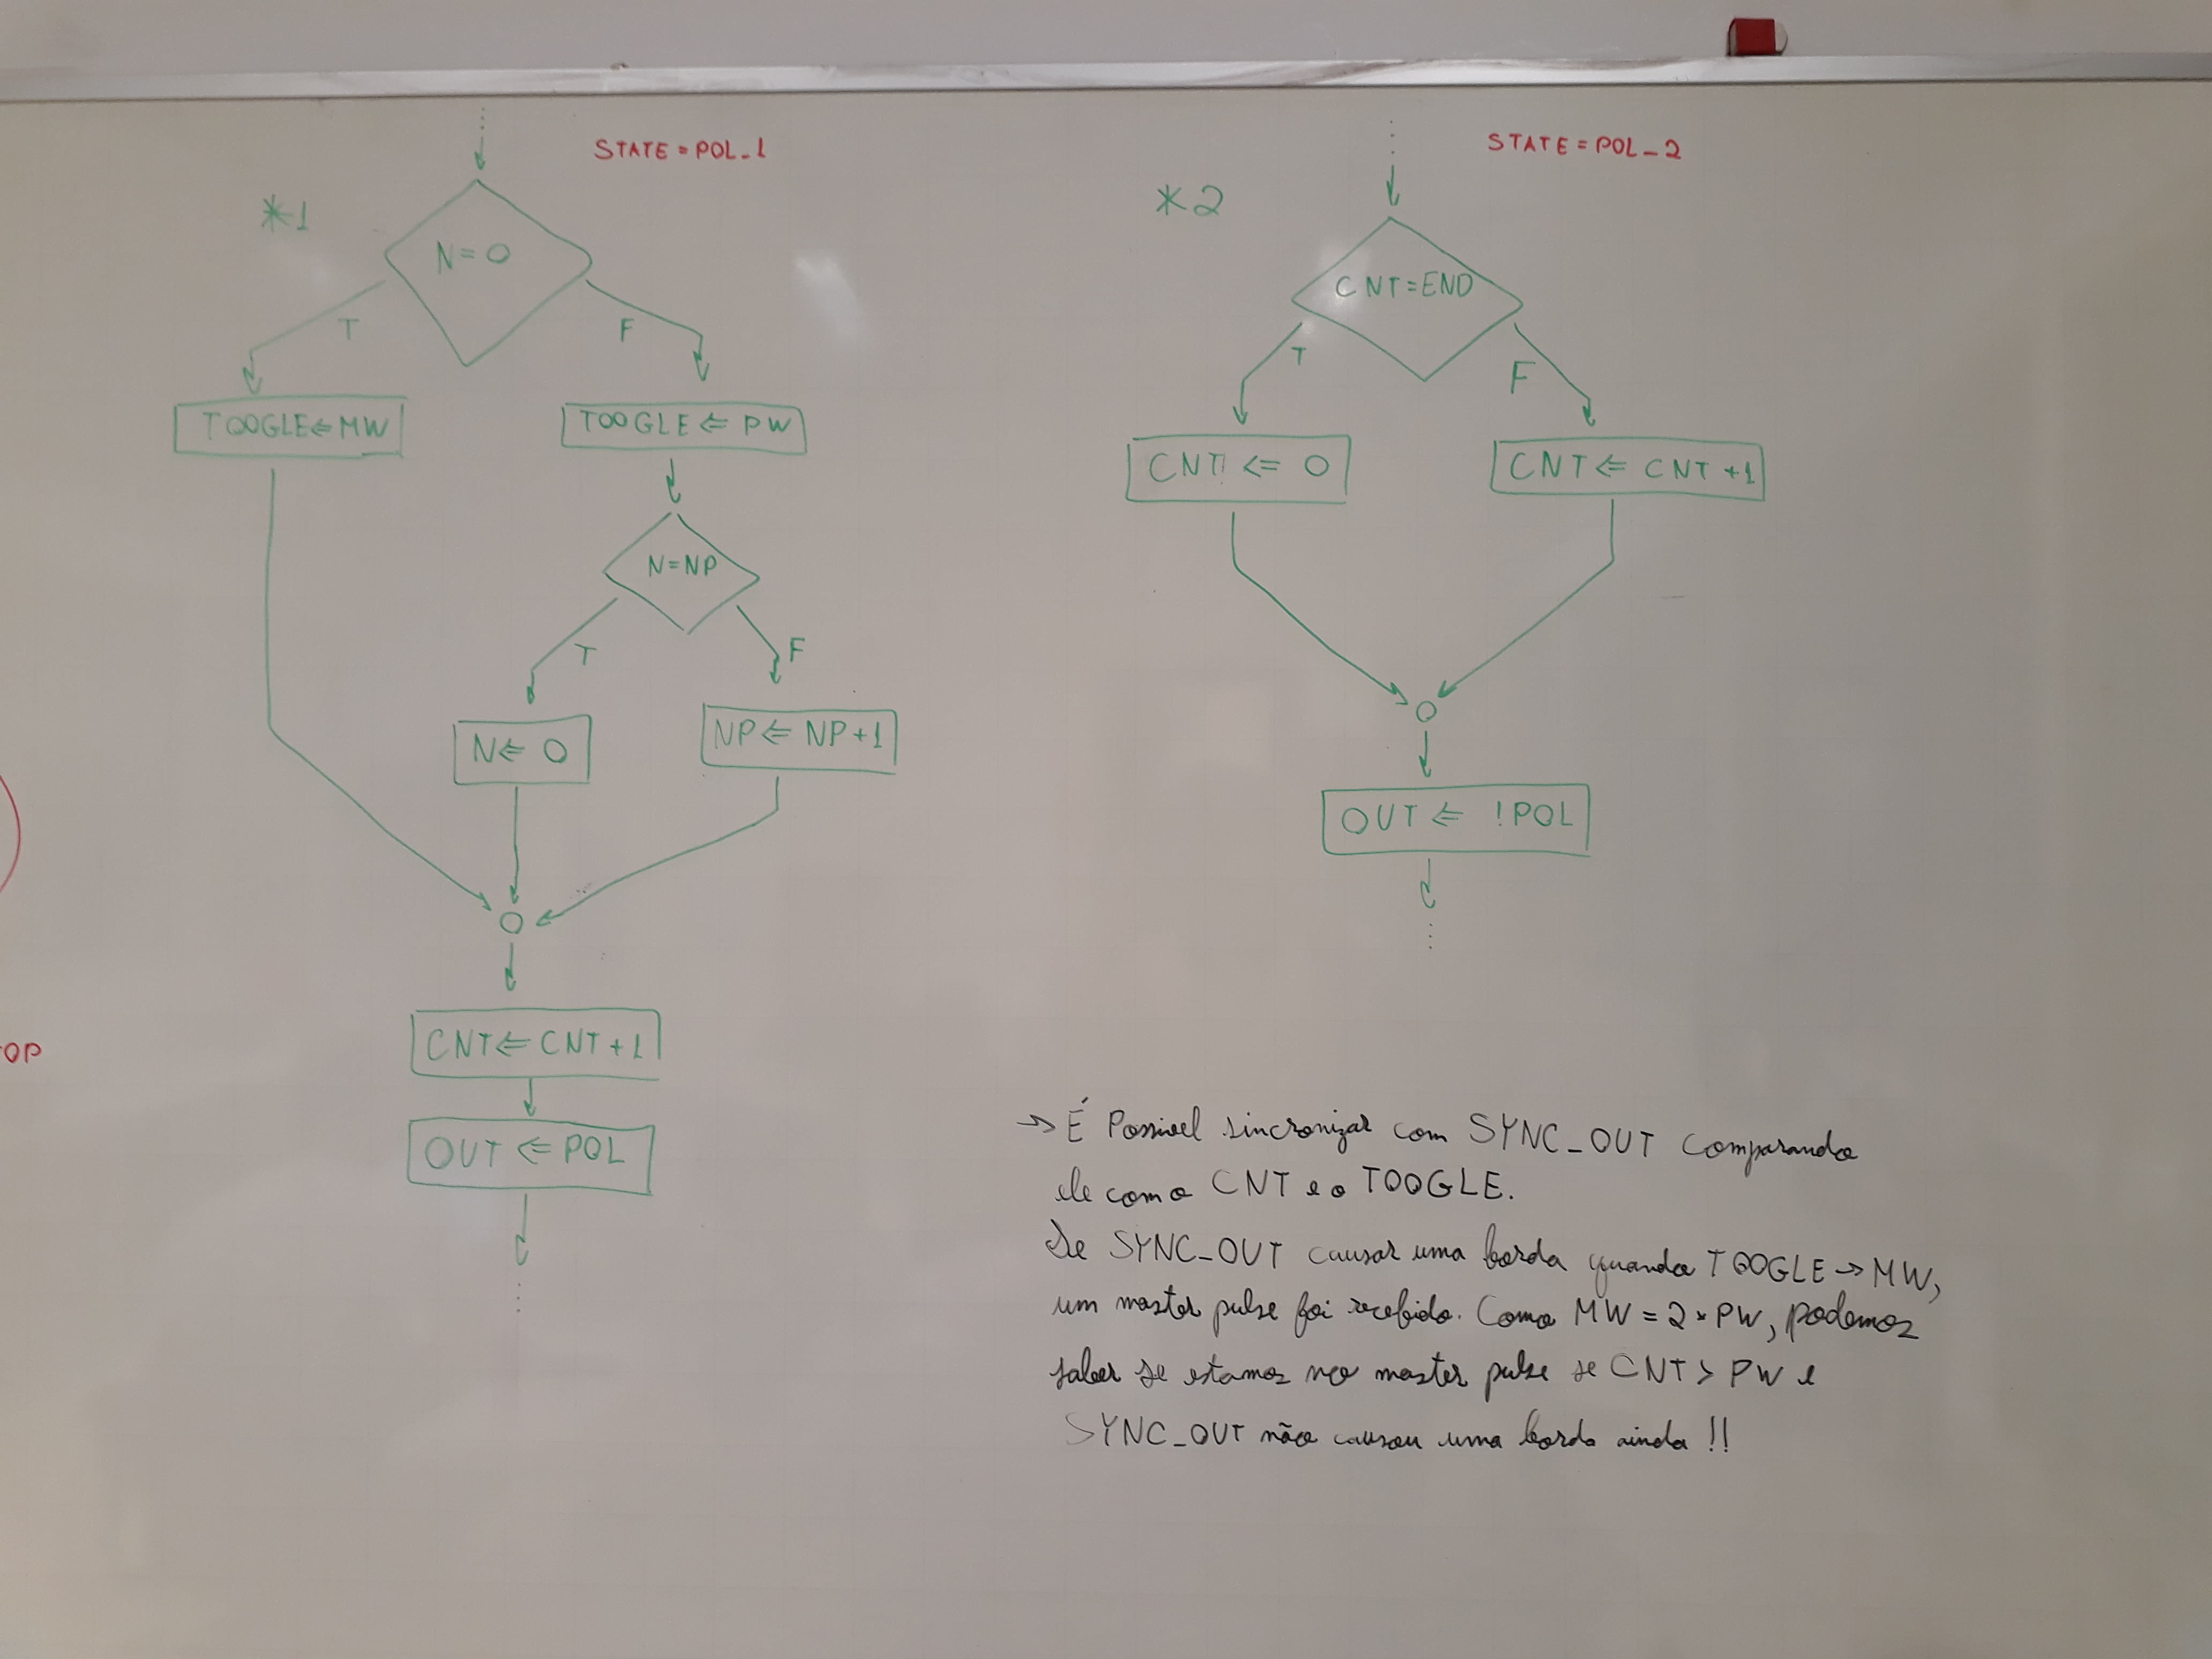 STATE = POL_1
*1
N=0
T
F
TOOGLE <= MW
TOOGLE <= PW
N=NP
T
F
N <= 0
NP <= NP+1
CNT <= CNT +1
OUT <= POL
OP
STATE = POL_2
*2
CNT=END
T
F
CNT <= 0
CNT <= CNT +1
OUT <= !POL
→ É Possivel sincronizar com SYNC_OUT comparando
ele com o CNT e o TOOGLE.
Se SYNC_OUT causar uma borda quando TOOGLE → MW,
um master pulse foi recebido. Como MW = 2 * PW, podemos
saber se estamos no master pulse se CNT > PW e
SYNC_OUT não causou uma borda ainda !!